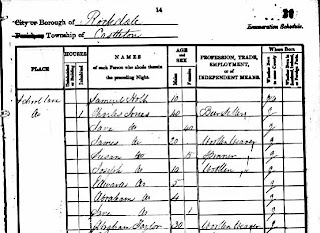 14
City or Borough of Rochdale
Parish or Township of Castleton
Enumeration Schedule.
PLACE
HOUSES
Uninhabited or Building
Inhabited
NAMES of each Person who abode therein the preceding Night.
AGE and SEX
Males
Females
PROFESSION, TRADE, EMPLOYMENT, or of INDEPENDENT MEANS.
Where Born
Whether Born in same County
Whether Born in Scotland, Ireland, or Foreign Parts.
School Lane Samuel Holt 10
do 1 Charles 40 y
Jane do 40 y
James do 20 Woollen Weaver y
Susan do 15 y
Joseph do 10 Woollen y
Edward do 5 y
Abraham do 4 y
Jane do 1 y
Abraham Taylor 30 Woollen Weaver y